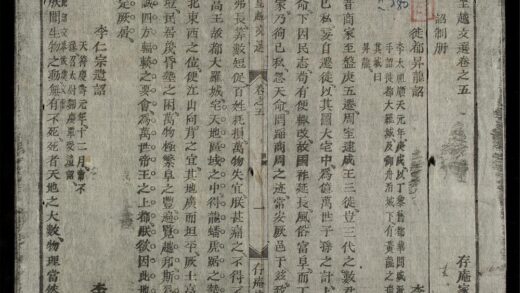 越文選卷之五 存庵家
詔制冊
徙都昇龍詔 李
李太祖順天元年庚戌以丁黎舊都華閭城湫
手詔徙都大羅城及御舟泊城下有黃龍之瑞
其城曰
昇龍
昔商家至盤庚五遷周室迨成王三徙豈三代之數君
己私妄自遷徙以其圖大宅中為億萬世子孫之計上
命下因民志苟有便輒改故國祚延長風俗富阜而丁
家乃徇己私忽天命罔蹈商周之迹常安厥邑于茲致
越文選 卷之五 一 存庵家
弗長算數短促百姓耗損萬物失宜朕甚痛之不得不
高王故都大羅城宅天地區域之中得龍蟠虎踞之勢
北東西之位便江山向背之宜其地廣而坦平厥土高
民居蔑昏墊之困萬物極繁阜之豐遍覽越邦斯
誠四方輻輳之要會為萬世帝王之上都朕欲因此地
定厥居
李仁宗遺詔 李
天符慶壽元年十二月帝不
豫召太尉劉慶覃受遺詔
朕聞生物之動無有不死死者天地之大數物理當然